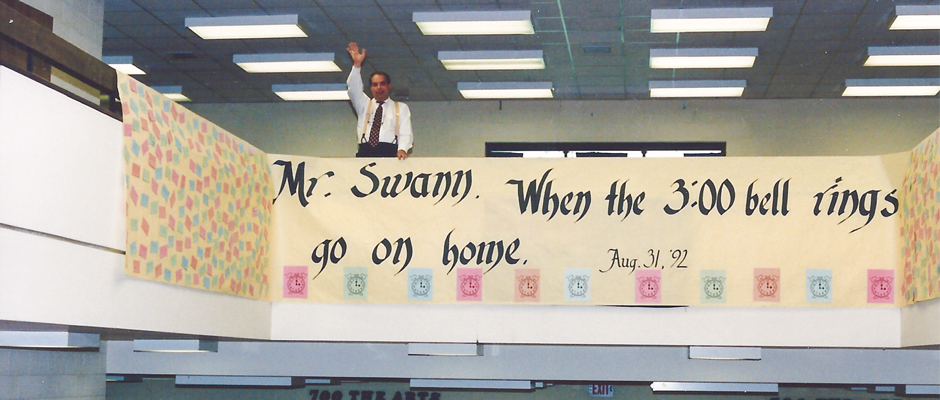 Mr. Swann. When the 3:00 bell rings
go on home. Aug. 31, '92
EXIT
700 THE ARTS